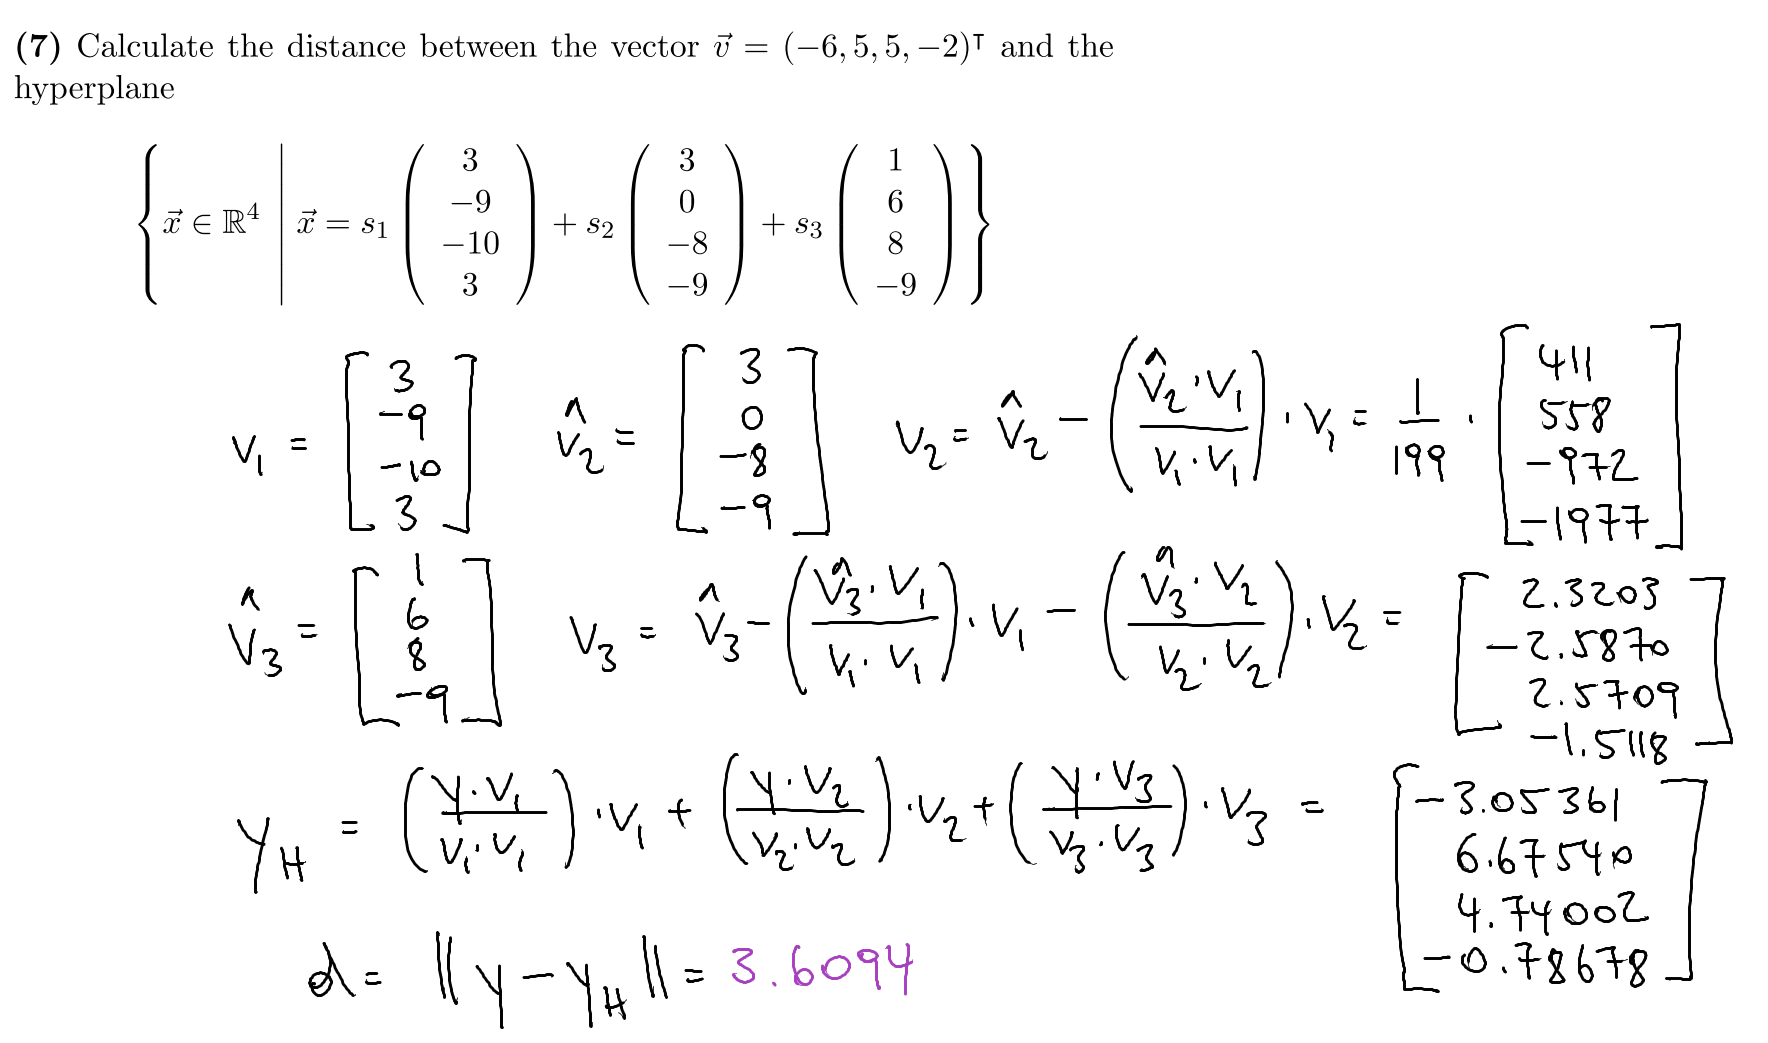 (7) Calculate the distance between the vector v⃗ = (−6, 5, 5, −2)ᵀ and the
hyperplane
{ x⃗ ∈ ℝ⁴ | x⃗ = s₁ (3, −9, −10, 3) + s₂ (3, 0, −8, −9) + s₃ (1, 6, 8, −9) }
v₁ = [3, −9, −10, 3] v̂₂ = [3, 0, −8, −9] v₂ = v̂₂ − (v̂₂·v₁ / v₁·v₁) · v₁ = 1/199 · [411, 558, −972, −1977]
v̂₃ = [1, 6, 8, −9] v₃ = v̂₃ − (v̂₃·v₁ / v₁·v₁) · v₁ − (v̂₃·v₂ / v₂·v₂) · v₂ = [2.3203, −2.5870, 2.5709, −1.5118]
y_H = (y·v₁ / v₁·v₁) · v₁ + (y·v₂ / v₂·v₂) · v₂ + (y·v₃ / v₃·v₃) · v₃ = [−3.05361, 6.67540, 4.74002, −0.78678]
d = ‖y − y_H‖ = 3.6094